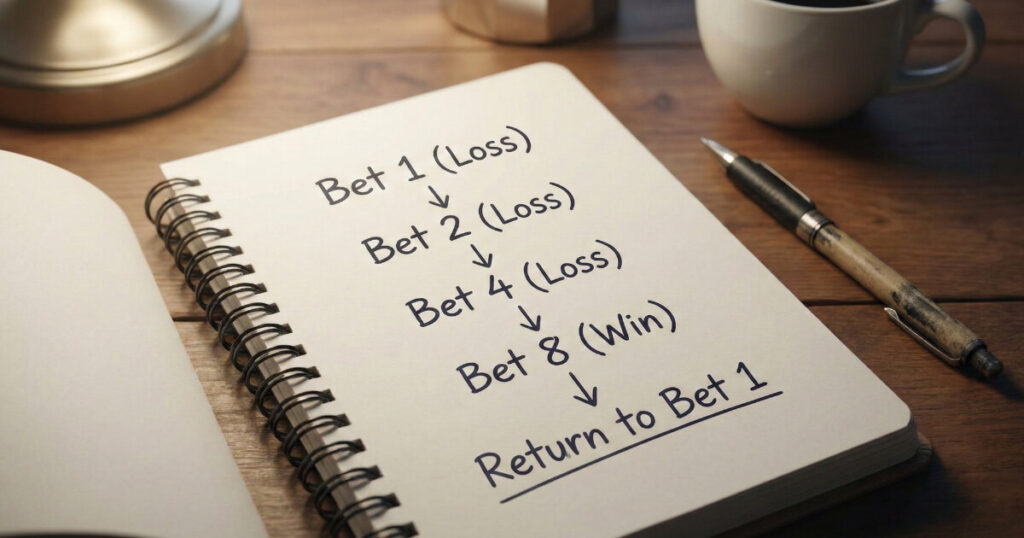 Bet 1 (Loss)
↓
Bet 2 (Loss)
↓
Bet 4 (Loss)
↓
Bet 8 (Win)
↓
Return to Bet 1